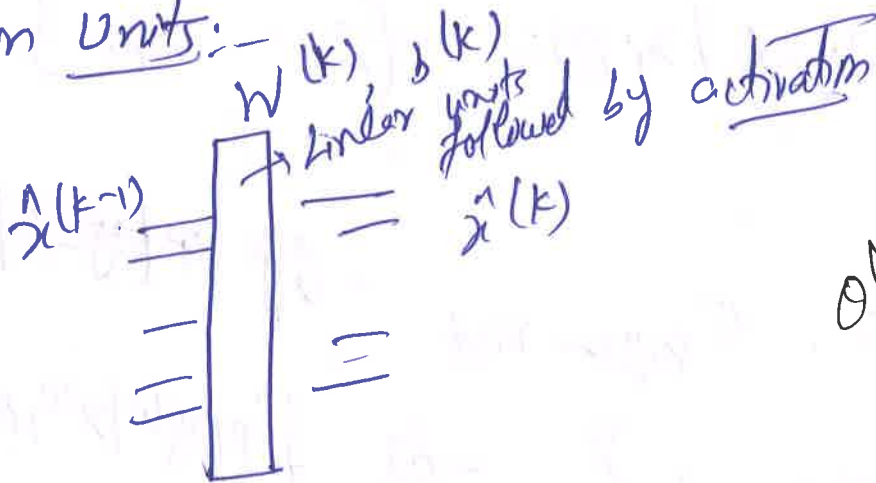 n Units:-
W^(k), b^(k)
Linear units
followed by activation
x̂^(k-1)
x̂^(k)
θ